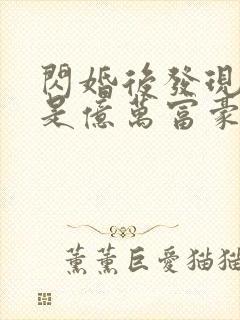 閃婚後發現
是億萬富豪
薰薰巨愛猫猫